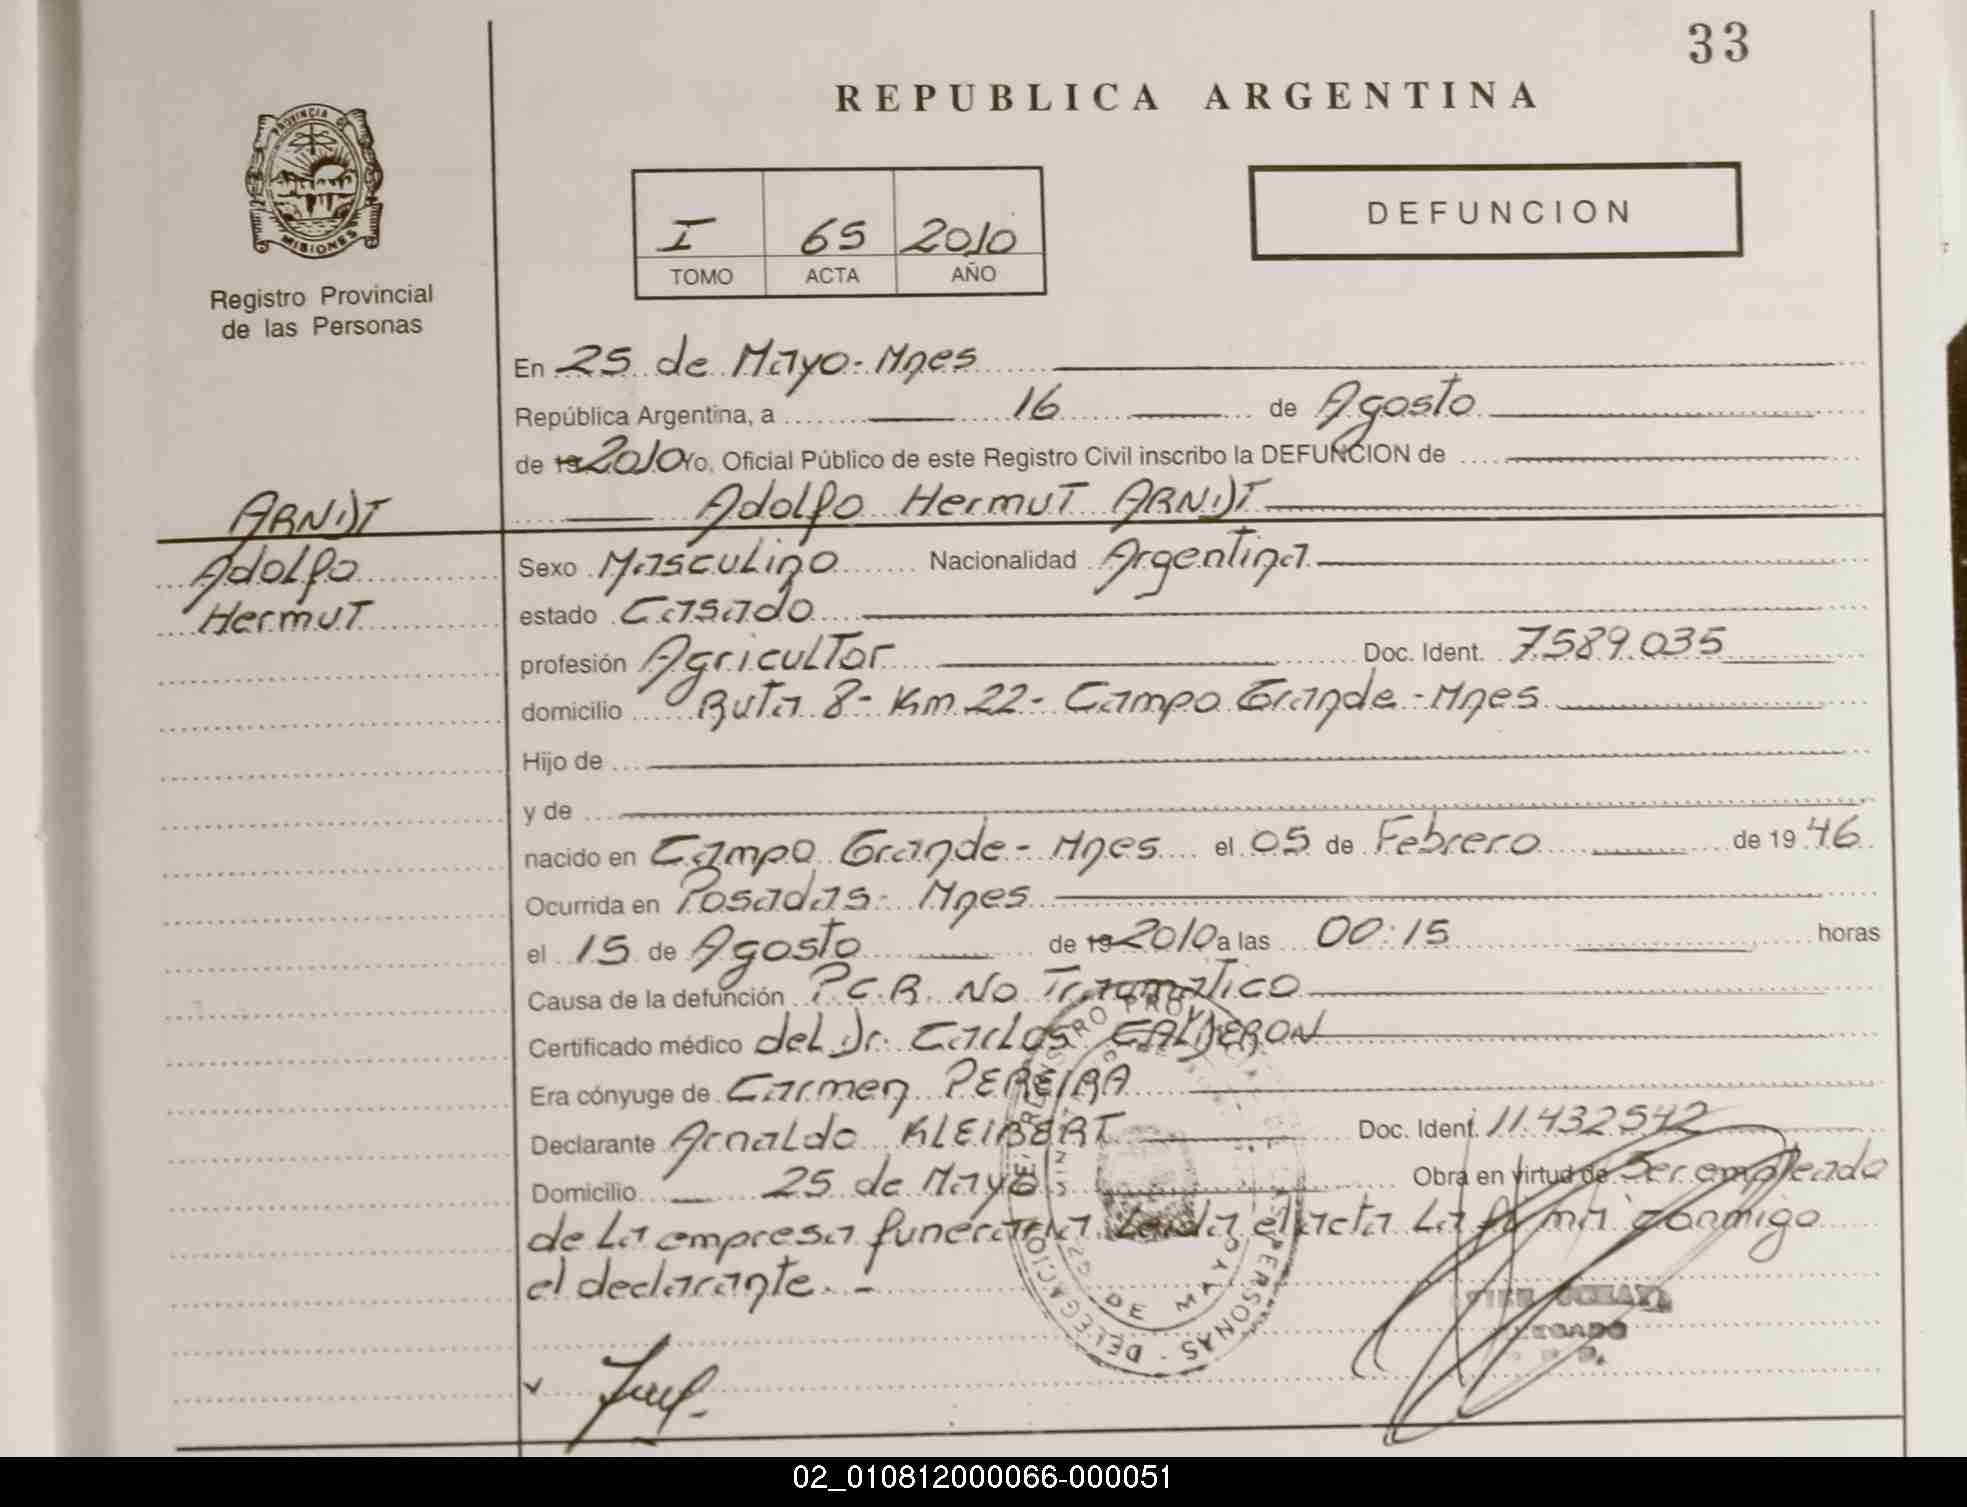 33
REPUBLICA ARGENTINA
PROVINCIA DE
MISIONES
Registro Provincial
de las Personas
I 65 2010
TOMO ACTA AÑO
DEFUNCION
En 25 de Mayo - Mnes
República Argentina, a 16 de Agosto
de 19 2010 Yo, Oficial Público de este Registro Civil inscribo la DEFUNCION de
Adolfo Hermut ARNDT
ARNDT
Adolfo
Hermut
Sexo Masculino Nacionalidad Argentina
estado Casado
profesión Agricultor Doc. Ident. 7.589.035
domicilio Ruta 8 - Km 22 - Campo Grande - Mnes
Hijo de
y de
nacido en Campo Grande - Mnes el 05 de Febrero de 1946
Ocurrida en Posadas - Mnes
el 15 de Agosto de 19 2010 a las 00:15 horas
Causa de la defunción P.C.R. No Traumatico
Certificado médico del Dr. Carlos CALDERON
Era cónyuge de Carmen PEREIRA
Declarante Arnaldo KLEIBERT Doc. Ident. 11.432542
Domicilio 25 de Mayo Obra en virtud de Ser empleado
de la empresa funeraria. Leida el acta la firma conmigo
el declarante. -
REGISTRO PROVINCIAL DE LAS PERSONAS - DELEGACION
25 DE MAYO
02_010812000066-000051